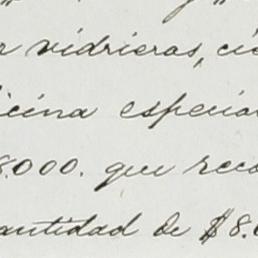 r vidrieras, ci
icina especia
8.000. que reco
antidad de $8.0